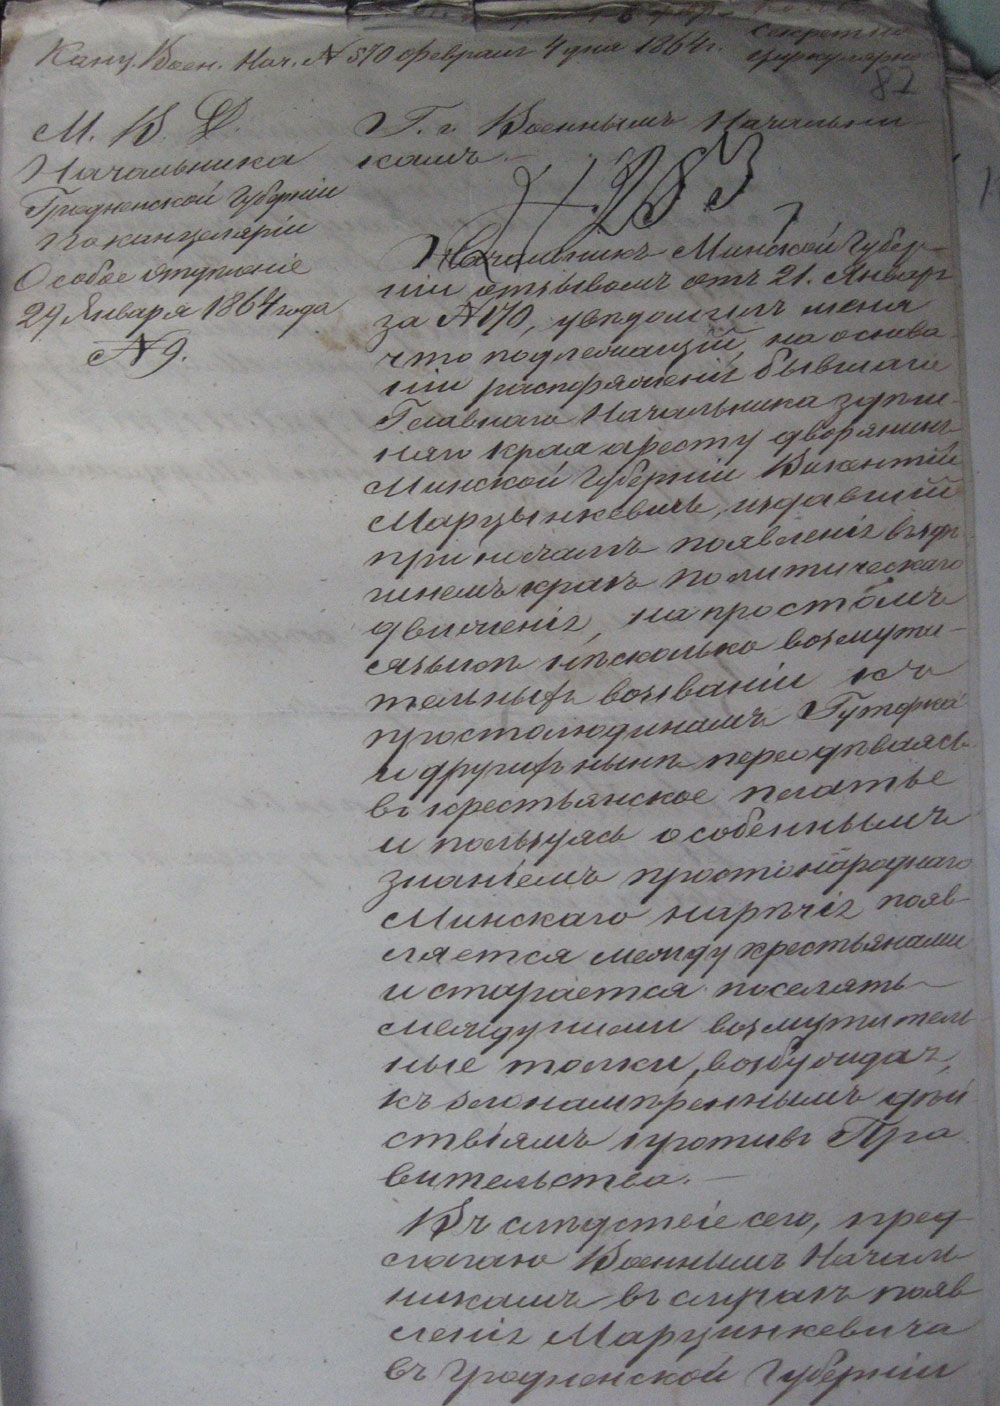 Секретно
Канц. Воен. Нач. № 570 февраля 4 дня 1864 г. Циркулярно
82
М. В. Д.
Начальника
Гродненской Губерніи
По канцеляріи
Особое отдѣленіе
29 Января 1864 года
№ 9.
Г. г. Военнымъ Начальни-
камъ.
283
Начальникъ Минской Губер-
ніи отзывомъ отъ 21. Января
за № 170, увѣдомилъ меня
что подлежащій, на основа-
ніи распоряженія бывшаго
Главнаго Начальника здѣш-
няго края аресту дворянинъ
Минской Губерніи Викентій
Марцынкевичъ, издавшій
при началѣ появленія въ здѣ-
шнемъ краѣ политическаго
движенія, на простомъ
языкѣ нѣсколько возмути-
тельныхъ воззваній къ
простолюдинамъ Гуторка
и другихъ нынѣ переодѣваясь
въ крестьянское платье
и пользуясь особеннымъ
знаніемъ простонароднаго
Минскаго нарѣчія появ-
ляется между крестьянами
и старается поселять
между ними возмутитель-
ные толки, возбуждая,
къ злонамѣреннымъ дѣй
ствіямъ противъ Пра
вительства.
Въ слѣдствіе сего, пред-
лагаю Военнымъ Началь
никамъ въ случаѣ появ
ленія Марцинкевича
въ Гродненской Губерніи